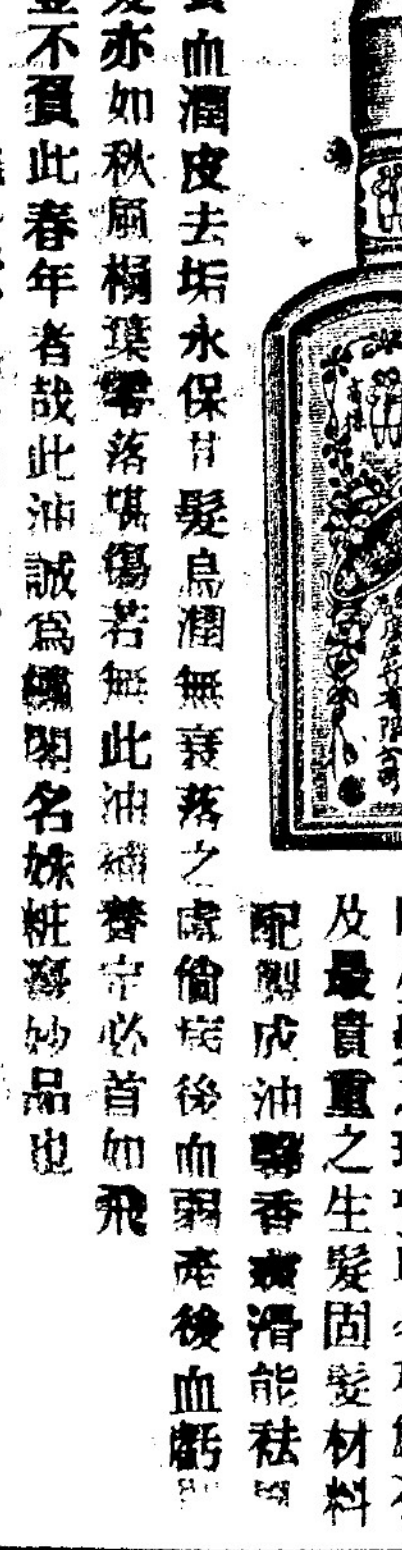 及最貴重之生髮固髮材料
配製成油馨香爽滑能祛
血潤皮去垢永保甘髮烏潤無衰落之虞倘病後血弱產後血虧
亦如秋風梧葉零落堪傷若無此油補養定必首如飛
不負此春年者哉此油誠為繡閣名姝粧臺妙品也